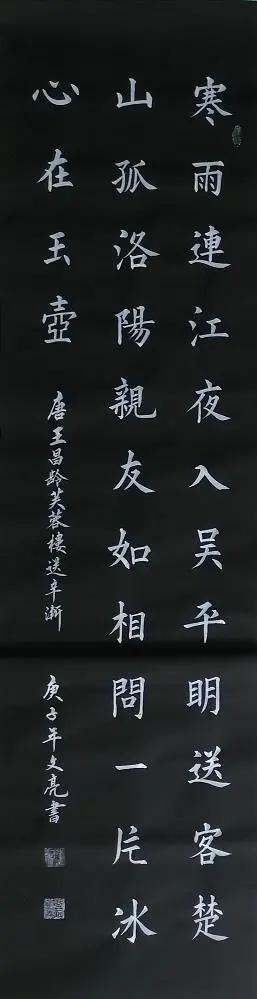 寒雨連江夜入吴平明送客楚
山孤洛陽親友如相問一片冰
心在玉壺
唐王昌龄芙蓉樓送辛漸
庚子年文亮書